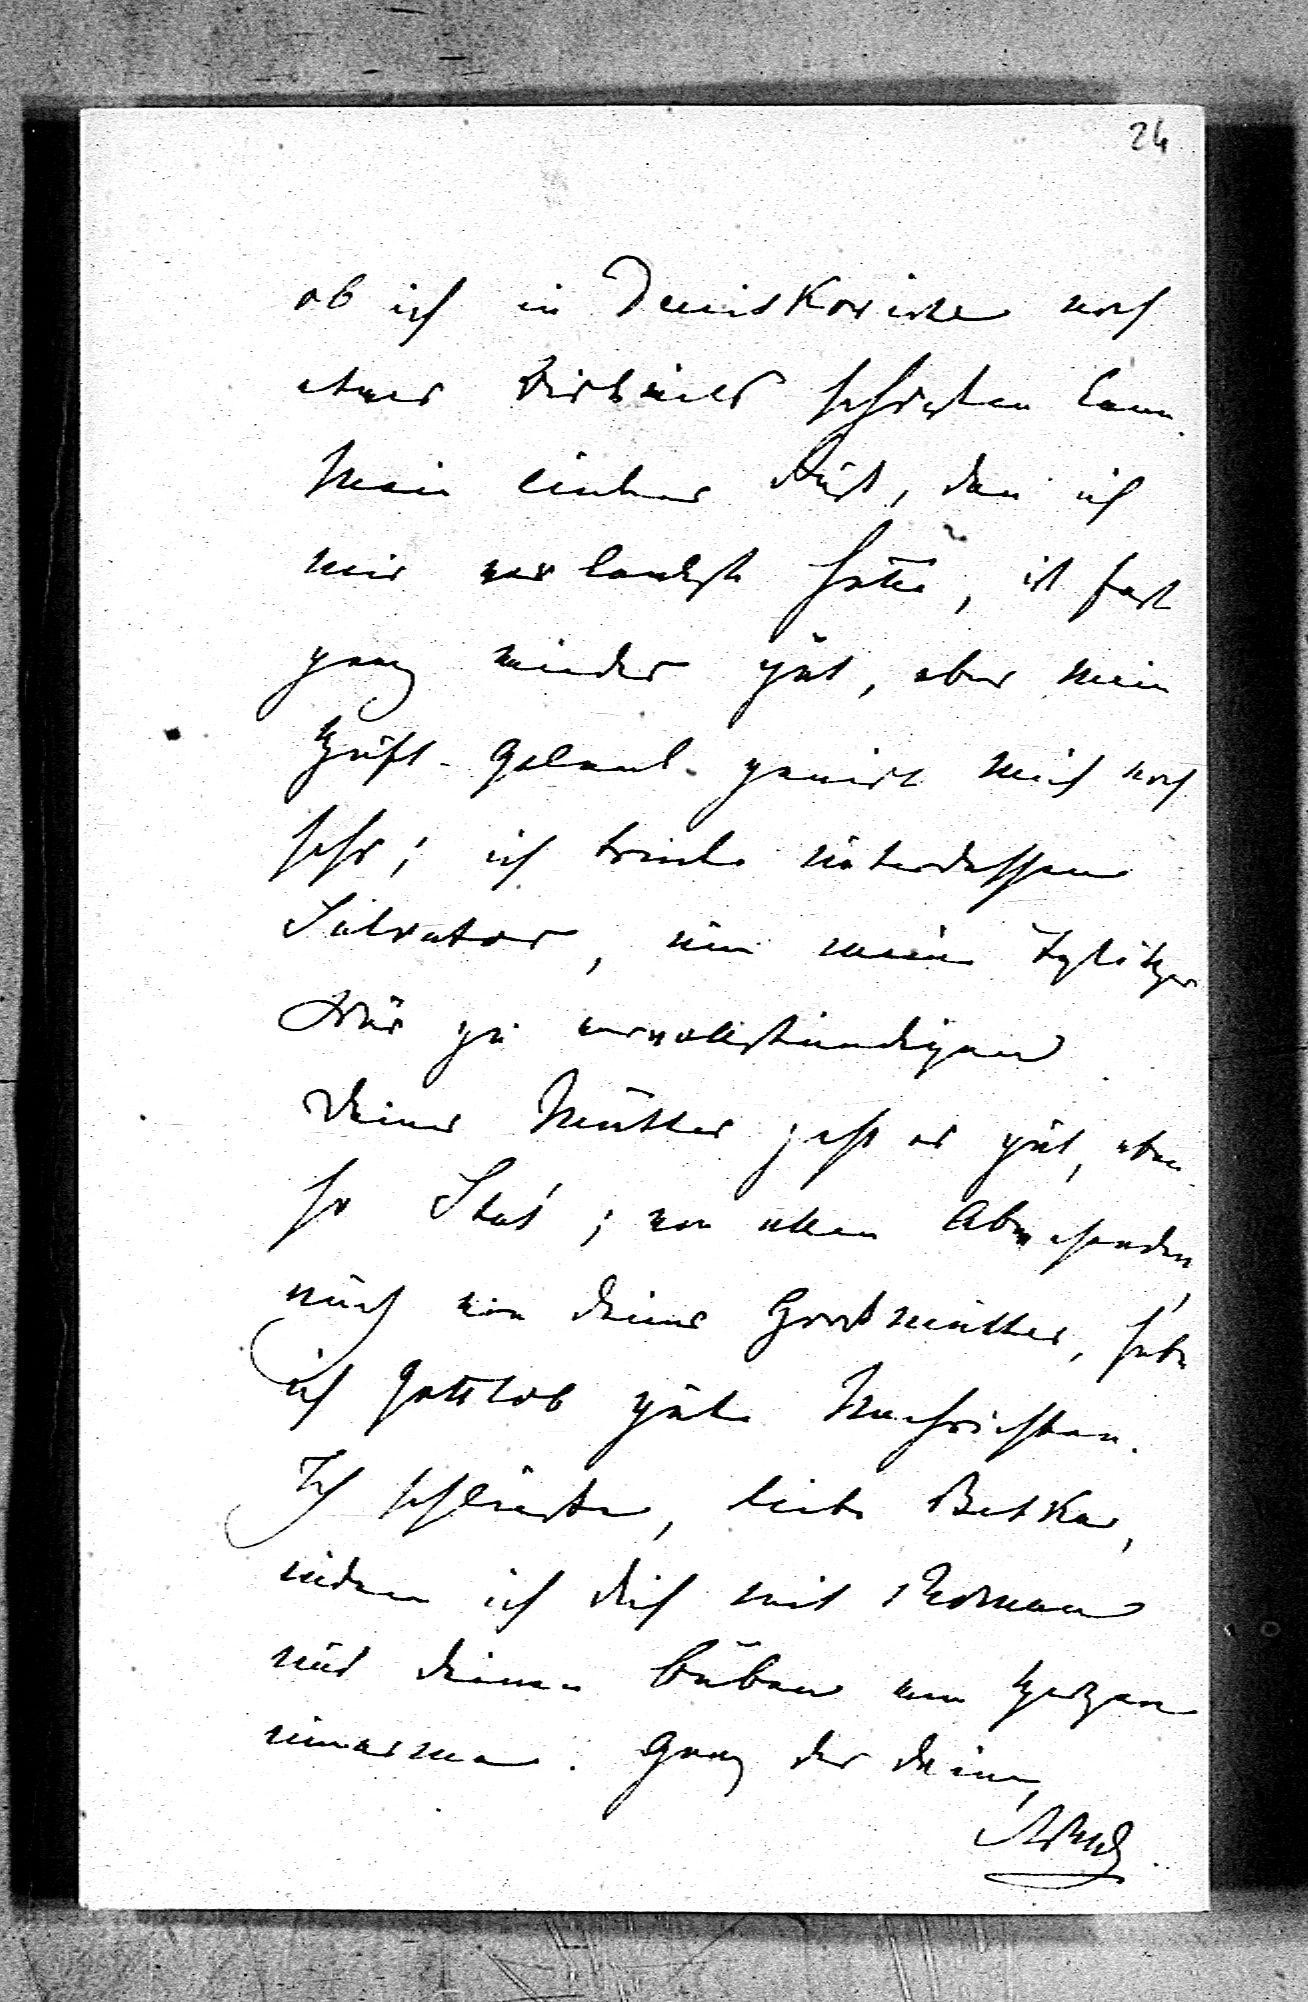 24
ob ich in Deniskoviche noch
etwas schießen kann.
Mein linker Fuß, den ich
mir verlenkt hatte, ist fast
ganz wieder gut, aber mein
Hüft-Gelenk genirt mich noch
sehr; ich trinke unterdessen
Salvator, um meine Teplitzer
Kur zu vervollständigen.
Deiner Mutter geht es gut, eben
so Staś; von allen Abwesenden,
auch von deiner Großmutter, habe
ich gottlob gute Nachrichten.
Ich schließe, liebe Betka,
indem ich dich mit Roman
und deinen Buben von Herzen
umarme. Ganz der deine,